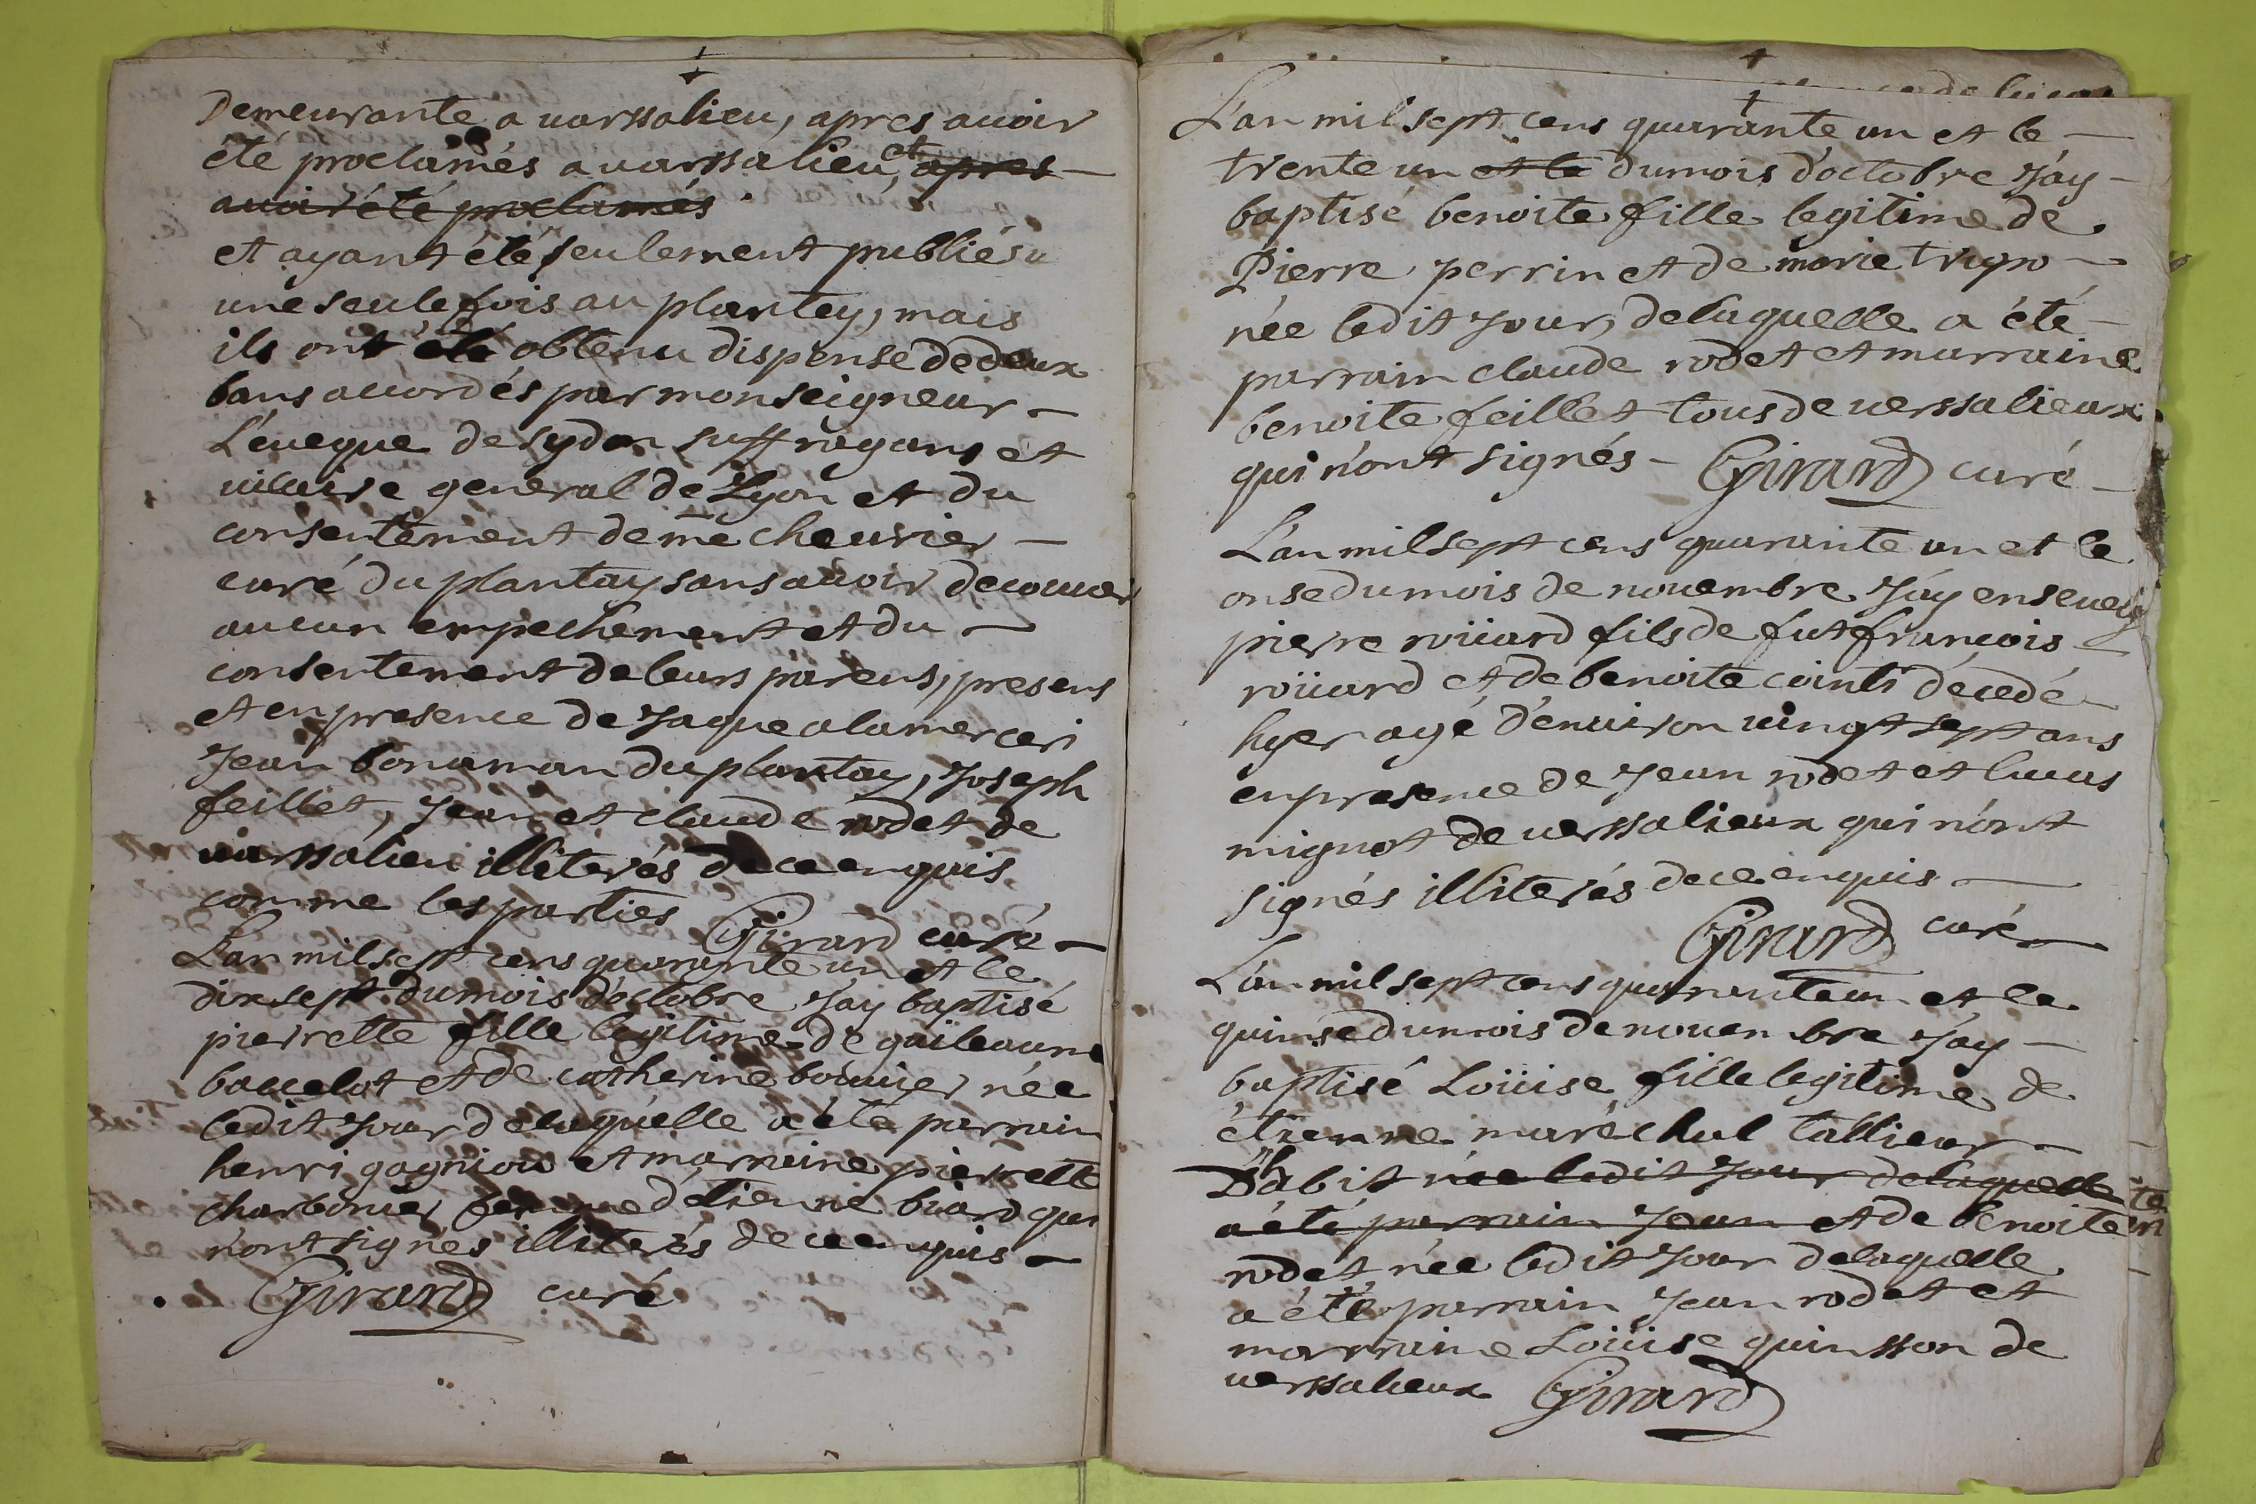 Demeurante a uarssalieu, apres auoir
été proclamés a uarssalieu, et apres
auoir été proclamés
et ayant été seulement publiés
une seule fois au plantey, mais
ils ont été obtenu dispense de deux
bans accordés par monseigneur
L'éueque de sydon suffragans et
uicaire general de Lyon et du
consentement de me cheurier
curé du plantay sans auoir decouuer
aucun empechement et du
consentement de leurs parens, presens
et en presence de Jaque alamerceri
Jean bonaman du plantay, Joseph
feillet, Jean et claude rodet de
uarssalieu illiterés de ce enquis
comme les parties Girard curé
L'an mil sept cens quarante un et le
dixsept du mois d'octobre J'ay baptisé
pierrette fille legitime de guileaume
baucelot et de catherine bouuier née
ledit Jour de laquelle a été parrain
henri gagniou et marraine pierrette
charbonier femme d'etienne biard qui
n'ont signés illiterés de ce enquis
Girard curé
L'an mil sept cens quarante un et le
trente un et le du mois d'octobre J'ay
baptisé benoite fille legitime de
Pierre perrin et de marie trigo
née ledit Jour, de laquelle a été
parrain claude rodet et marraine
benoite feillet tous de uerssalieux
qui n'ont signés Girard curé
L'an mil sept cens quarante un et le
onse du mois de nouembre J'ay enseueli
pierre roüard fils de fut françois
roüard et de benoite cointi décedé
hyer agé d'enuiron uingt sept ans
en presence de Jean rodet et lucas
mignot de uerssalieux qui n'ont
signés illiterés de ce enquis
Girard curé
L'an mil sept cens quarante un et le
quinse du mois de nouenbre J'ay
baptisé Loüise fille legitime de
étienne maréchal tallieur
D'habit née ledit Jour de laquelle
a été parrain Jean et de benoite
rodet née ledit Jour de laquelle
a été parrain Jean rodet et
marraine Loüise quinsson de
uerssalieux Girard